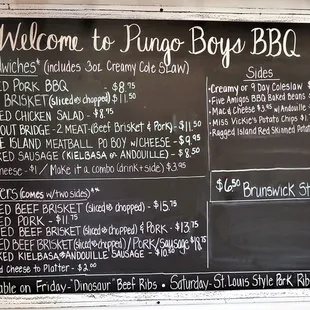 Welcome to Pungo Boys BBQ
dwiches* (includes 3oz. Creamy Cole Slaw)
ED PORK BBQ - $8.75
BRISKET (sliced or chopped) - $11.50
ED CHICKEN SALAD - $8.75
OUT BRIDGE - 2 MEAT - (Beef Brisket & Pork) - $11.50
E ISLAND MEATBALL PO BOY w/CHEESE - $9.95
KED SAUSAGE (KIELBASA or ANDOUILLE) - $8.50
heese - $1 / Make it a combo (drink + side) $3.95
ers (comes w/two sides)**
ED BEEF BRISKET (sliced or chopped) - $15.75
ED PORK - $11.75
ED BEEF BRISKET (sliced or chopped) & PORK - $13.75
ED BEEF BRISKET (sliced or chopped)/Pork/Sausage $18.75
KED KIELBASA or ANDOUILLE SAUSAGE - $10.50
d Cheese to Platter - $2.00
Sides
Creamy or 9 Day Coleslaw
Five Amigos BBQ Baked Beans
Mac & Cheese $3.95 w/Andouille
Miss Vickie's Potato Chips $1.
Ragged Island Red Skinned Potato
$6.50 Brunswick St
able on Friday - "Dinosaur" Beef Ribs • Saturday - St. Louis Style Pork Rib